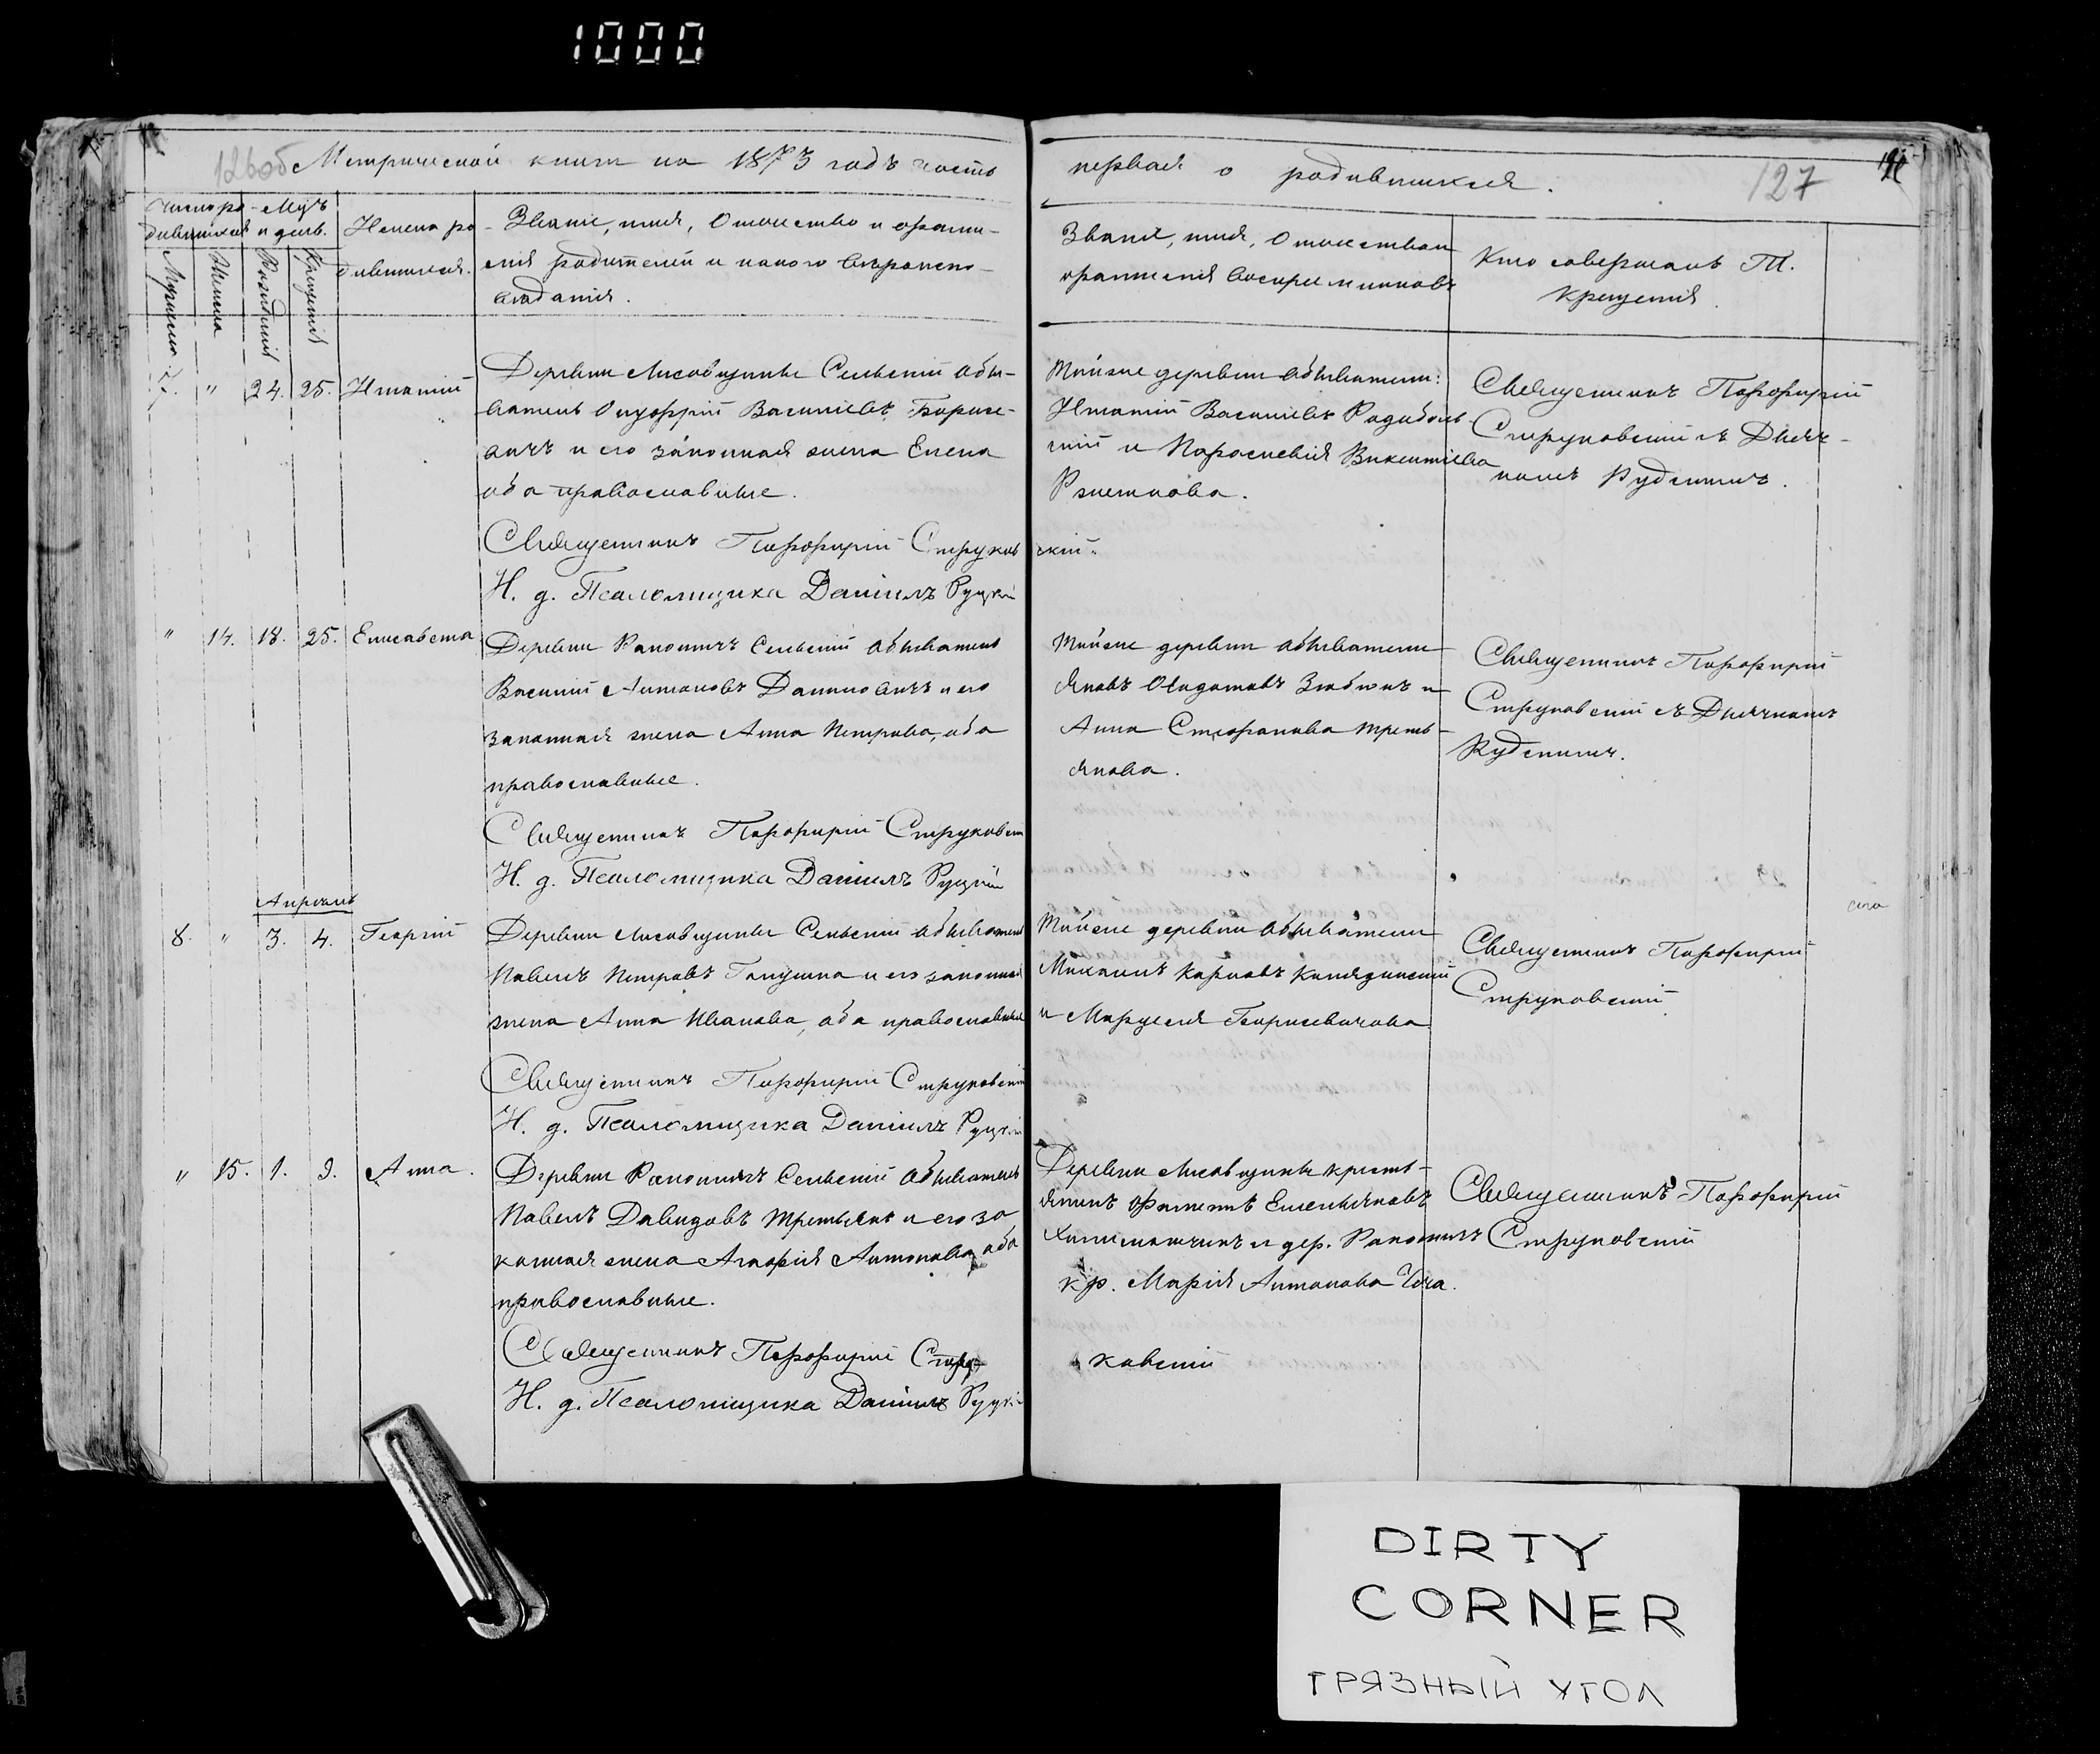 1000
126об Метрической книги на 1873 годъ часть
первая о родившихся.
127
Число ро- Мѣс.
дившихся и день.
Мужеска
Женска
Рожденія
Крещенія
Имена ро-
дившихся.
Званіе, имя, Отчество и фами-
лія родителей и какого вѣроиспо-
вѣданія.
Званіе, имя, Отчество и
фамилія воспріемниковъ
Кто совершалъ Т.
Крещенія.
7. " 24. 25. Игнатій
Деревни Лисовщины Сельскій обы-
ватель Онуфрій Василіевъ Борисе-
вичъ и его законная жена Елена
оба православные.
Священникъ Порфирій Струков
скій.
И. д. Псаломщика Даніилъ Руцкій
Той же деревни обыватели:
Игнатій Василіевъ
и Параскевія Викентіева
Священникъ Порфирій
Струковскій съ Дьяч-
комъ Рудскимъ.
" 14. 18. 25. Елисавета
Деревни Рапоничъ Сельскій обыватель
Василій Антоновъ Даниловичъ и его
законная жена Анна Петрова, оба
православные.
Священникъ Порфирій Струковскій
И. д. Псаломщика Даніилъ Руцкій
Той же деревни обыватели
Яковъ и
Анна Стефанова Треть-
якова.
Священникъ Порфирій
Струковскій съ Дьячкомъ
Рудскимъ.
Апрѣль
8. " 3. 4. Георгій
Деревни Лисовщины Сельскій обыватель
Павелъ Петровъ Галушка и его законная
жена Анна Иванова, оба православные
Священникъ Порфирій Струковскій
И. д. Псаломщика Даніилъ Руцкій
Той же деревни обыватели
Михаилъ Карповъ
и Марцеля Борисевичова
Священникъ Порфирій
Струковскій
" 15. 1. 9. Анна.
Деревни Рапоничъ Сельскій обыватель
Павелъ Давидовъ Третьякъ и его за
конная жена Агафія Антонова, оба
православные.
Священникъ Порфирій Стру-
ковскій
И. д. Псаломщика Даніилъ Руцкій
Деревни Лисовщины кресть-
янинъ
и дер. Рапоничъ
кр. Марія Антонова
Священникъ Порфирій
Струковскій
DIRTY
CORNER
ГРЯЗНЫЙ УГОЛ